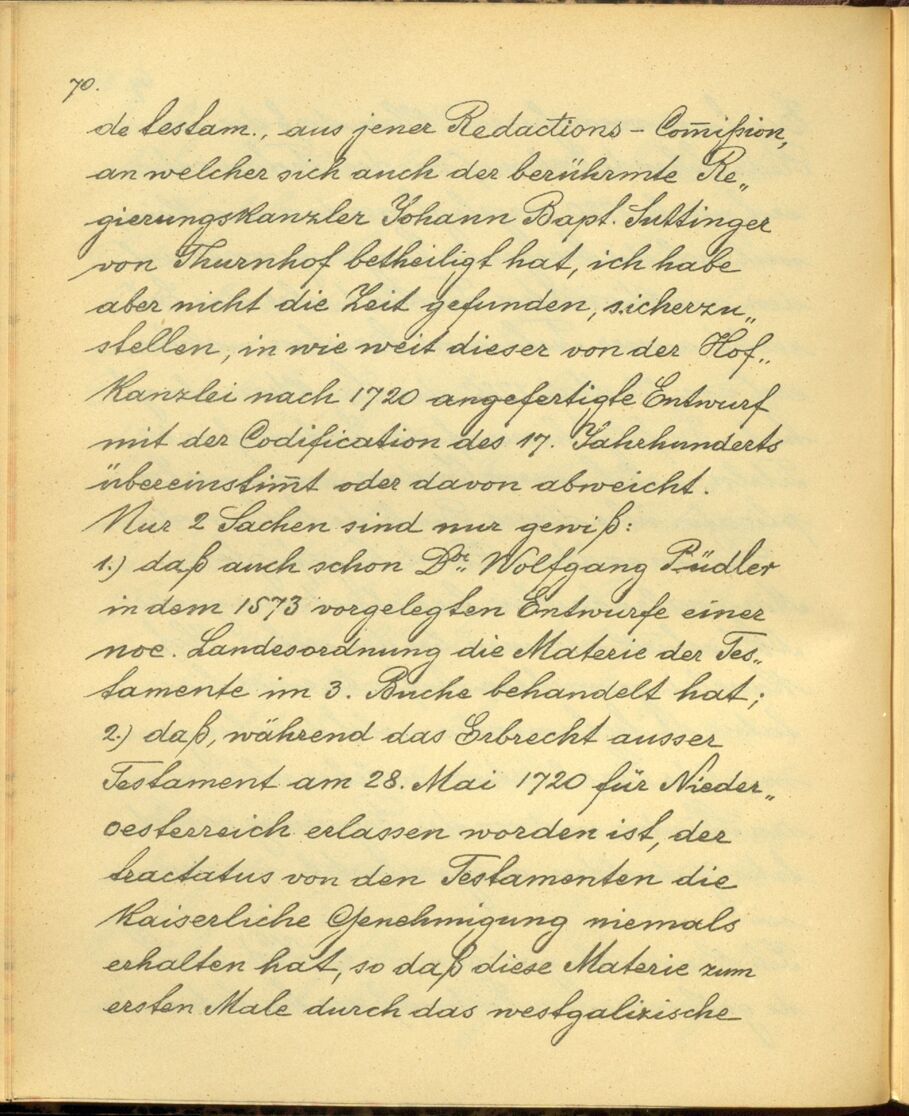 70.
de testam., aus jener Redactions-Com̄ißion,
an welcher sich auch der berühmte Re„
gierungskanzler Johann Bapt. Suttinger
von Thurnhof betheiligt hat, ich habe
aber nicht die Zeit gefunden, sicherzu„
stellen, in wie weit dieser von der Hof„
kanzlei nach 1720 angefertigte Entwurf
mit der Codification des 17. Jahrhunderts
übereinstim̄t oder davon abweicht.
Nur 2 Sachen sind nur gewiß:
1.) daß auch schon Dor. Wolfgang Püdler
in dem 1573 vorgelegten Entwurfe einer
noe. Landesordnung die Materie der Tes„
tamente im 3. Buche behandelt hat;
2.) daß, während das Erbrecht ausser
Testament am 28. Mai 1720 für Nieder„
oesterreich erlassen worden ist, der
tractatus von den Testamenten die
kaiserliche Genehmigung niemals
erhalten hat, so daß diese Materie zum
ersten Male durch das westgalizische